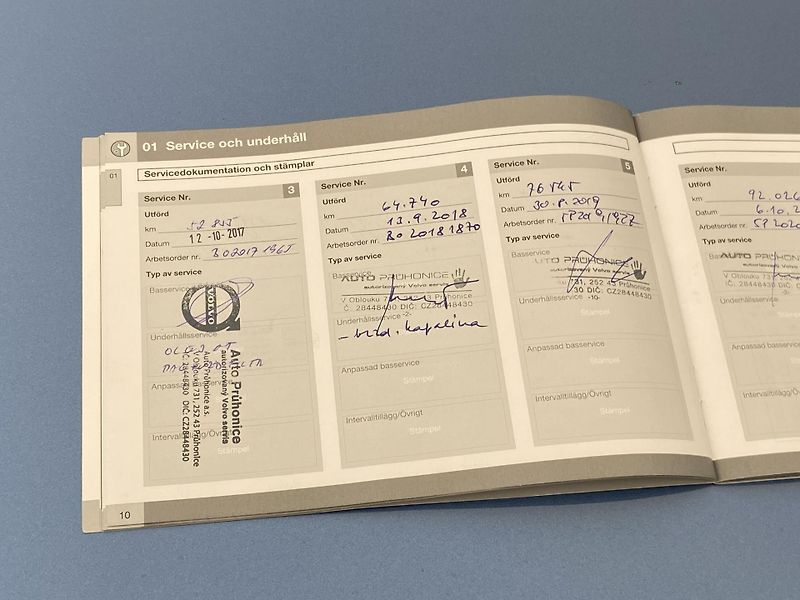 01 Service och underhåll
01
Servicedokumentation och stämplar
Service Nr. 3
Utförd
km
Datum 12 -10- 2017
Arbetsorder nr. BO2017 1965
Typ av service
Basservice
VOLVO
Underhållsservice
Anpassad
Intervalltillägg/Övrigt
Auto Průhonice
autorizovaný Volvo servis
Auto Průhonice a.s.
V Oblouku 731, 252 43 Průhonice
IČ: 28448430 DIČ: CZ28448430
Service Nr. 4
Utförd
km 64.740
Datum 13.9.2018
Arbetsorder nr. BO 2018 1870
Typ av service
Basservice
AUTO PRŮHONICE
autorizovaný Volvo servis
V Oblouku 43 Průhonice
Č: 28448430 DIČ: CZ28448430
Underhållsservice -2-
- brzd. kapalina
Anpassad basservice
Stämpel
Intervalltillägg/Övrigt
Stämpel
Service Nr. 5
Utförd
km
Datum 30.8.2019
Arbetsorder nr.
Typ av service
Basservice
AUTO PRŮHONICE
autorizovaný Volvo servis
731, 252 43 Průhonice
30 DIČ: CZ28448430
Underhållsservice -10-
Stämpel
Anpassad basservice
Stämpel
Intervalltillägg/Övrigt
Stämpel
Service Nr.
Utförd
km 92.026
Datum 6.10.2
Arbetsorder nr.
Typ av service
Basservice
AUTO PRŮH
autorizovaný
V Oblouku 731,
Č: 28448430
Underhållsservice
Anpassad basservice
Intervalltillägg/Övrigt
10